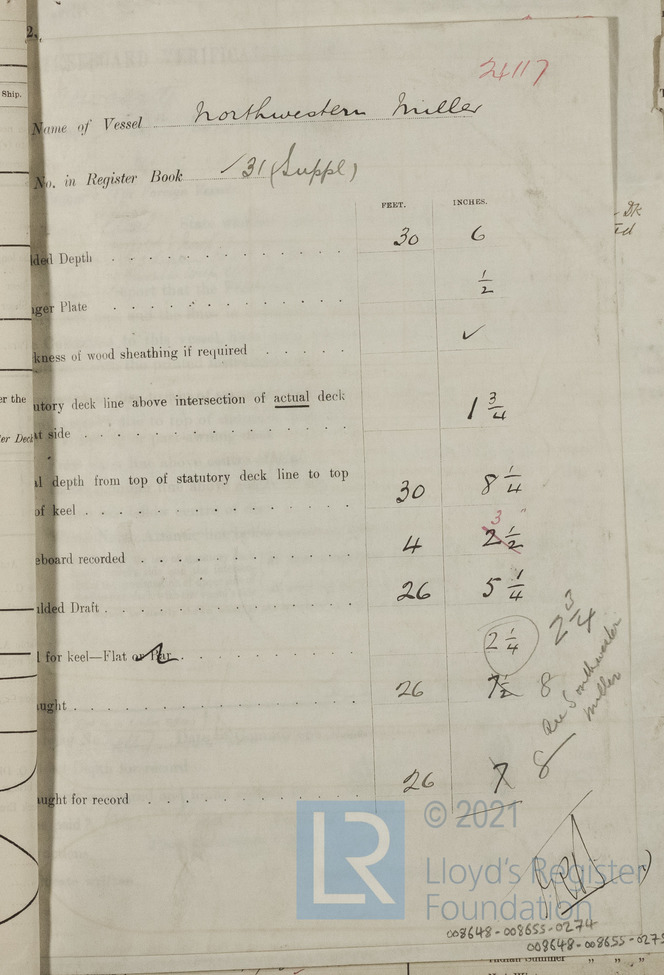 2.
24117
Ship.
Name of Vessel Northwestern Miller
No. in Register Book 31 (Suppl)
FEET. INCHES.
lded Depth 30 6
nger Plate 1/2
kness of wood sheathing if required ✓
er the
utory deck line above intersection of actual deck
at side 1 3/4
er Deck
l depth from top of statutory deck line to top
of keel 30 8 1/4
3"
eboard recorded 4 2 1/2
ulded Draft 26 5 1/4
l for keel—Flat or Bar 2 1/4 2 3/4
aught 26 7 1/2 8
See Southwestern
Miller
aught for record 26 7 8
LR
© 2021
Lloyd's Register
Foundation
008648-008655-0274
008648-008655-0275